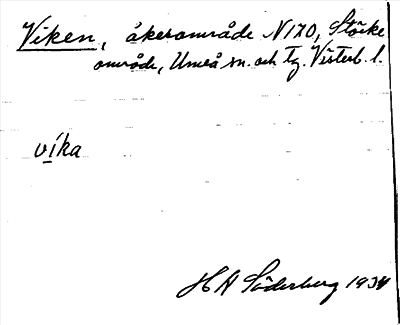 Viken, åkerområde N170, Stöcke
område, Umeå sn. och tg. Västerb. l.
vika
H A Söderberg 1934